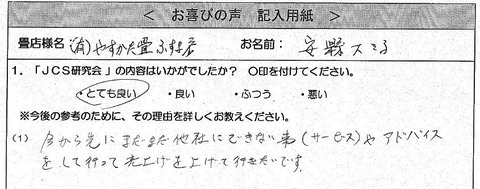 ＜ お喜びの声 記入用紙 ＞
畳店様名 (有)やすかた畳ふすま店 お名前：安
1. 「JCS研究会」の内容はいかがでしたか？ ○印を付けてください。
・とても良い ・良い ・ふつう ・悪い
※今後の参考のために、その理由を詳しくお教えください。
(1) 今から先にまだまだ他社にできない事(サービス)やアドバイス
をして行って売上げを上げて行きたいです。